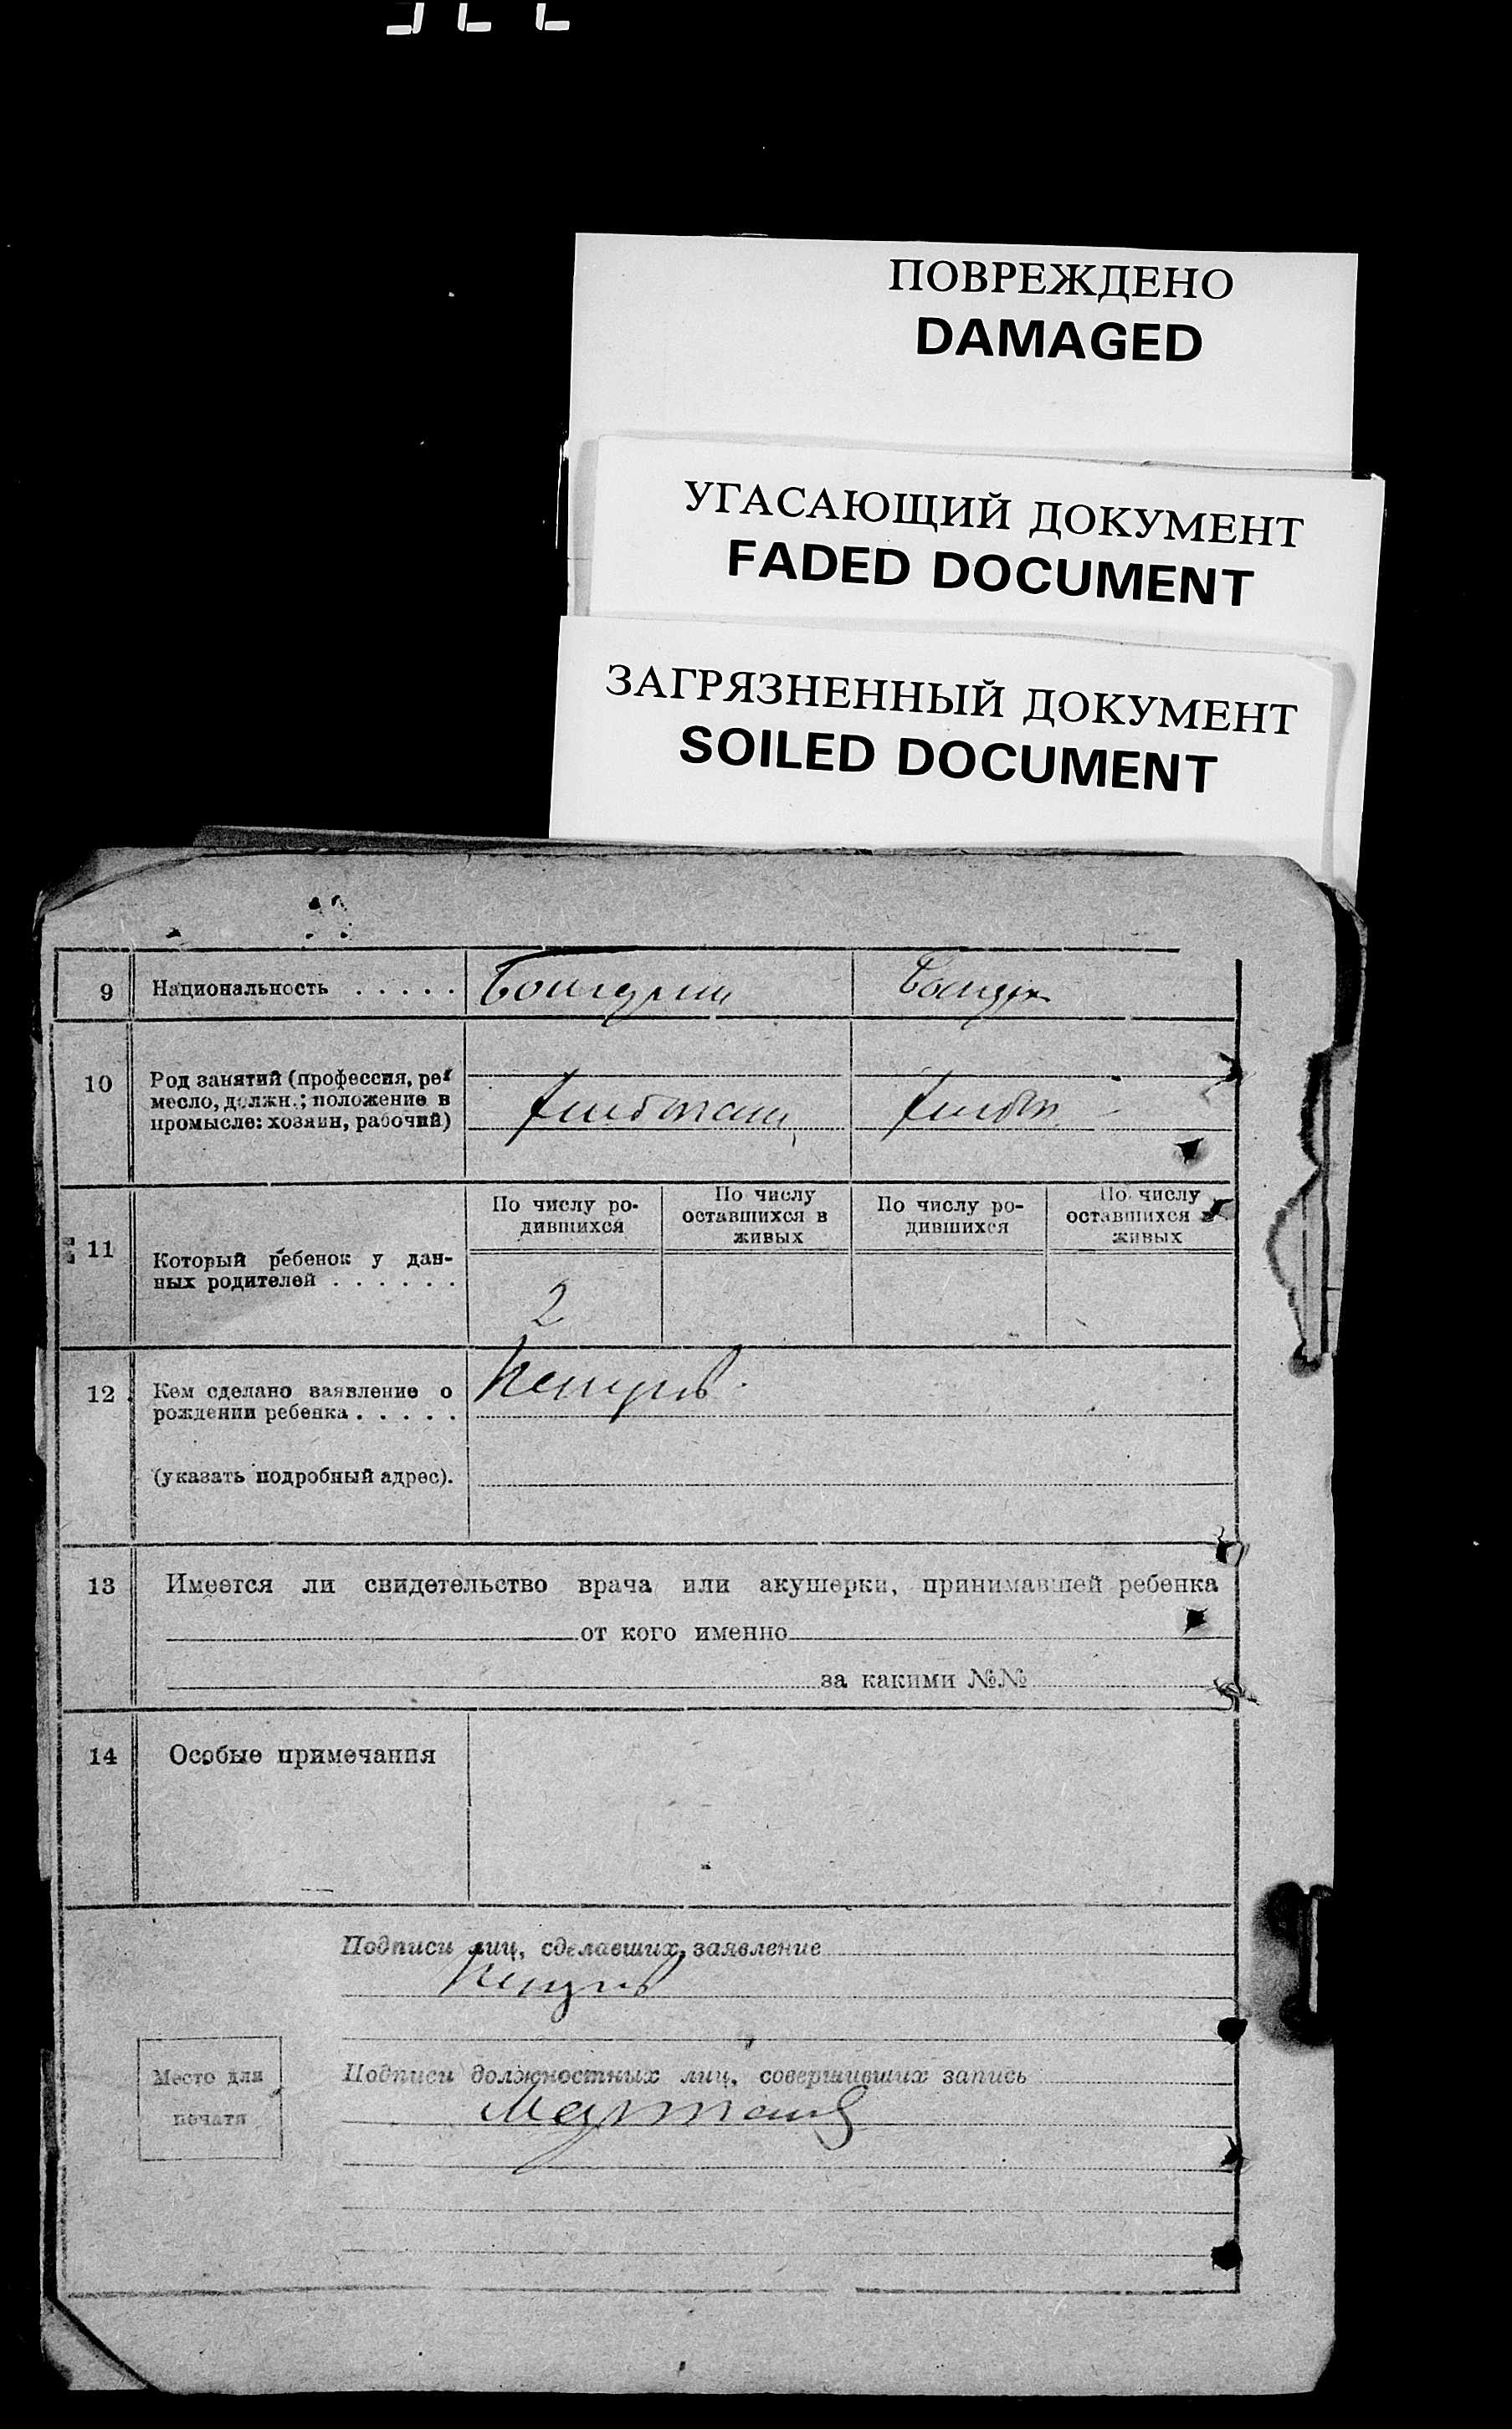 ПОВРЕЖДЕНО
DAMAGED
УГАСАЮЩИЙ ДОКУМЕНТ
FADED DOCUMENT
ЗАГРЯЗНЕННЫЙ ДОКУМЕНТ
SOILED DOCUMENT
9 Национальность . . . . .
10 Род занятий (профессия, ре-
месло, должн.; положение в
промысле: хозяин, рабочий)
По числу ро-
дившихся
По числу
оставшихся в
живых
По числу ро-
дившихся
По числу
оставшихся в
живых
11 Который ребенок у дан-
ных родителей . . . . . .
2
12 Кем сделано заявление о
рождении ребенка . . . . .
(указать подробный адрес).
13 Имеется ли свидетельство врача или акушерки, принимавшей ребенка
от кого именно
за какими №№
14 Особые примечания
Подписи лиц, сделавших заявление
Место для
печати
Подписи должностных лиц, совершивших запись